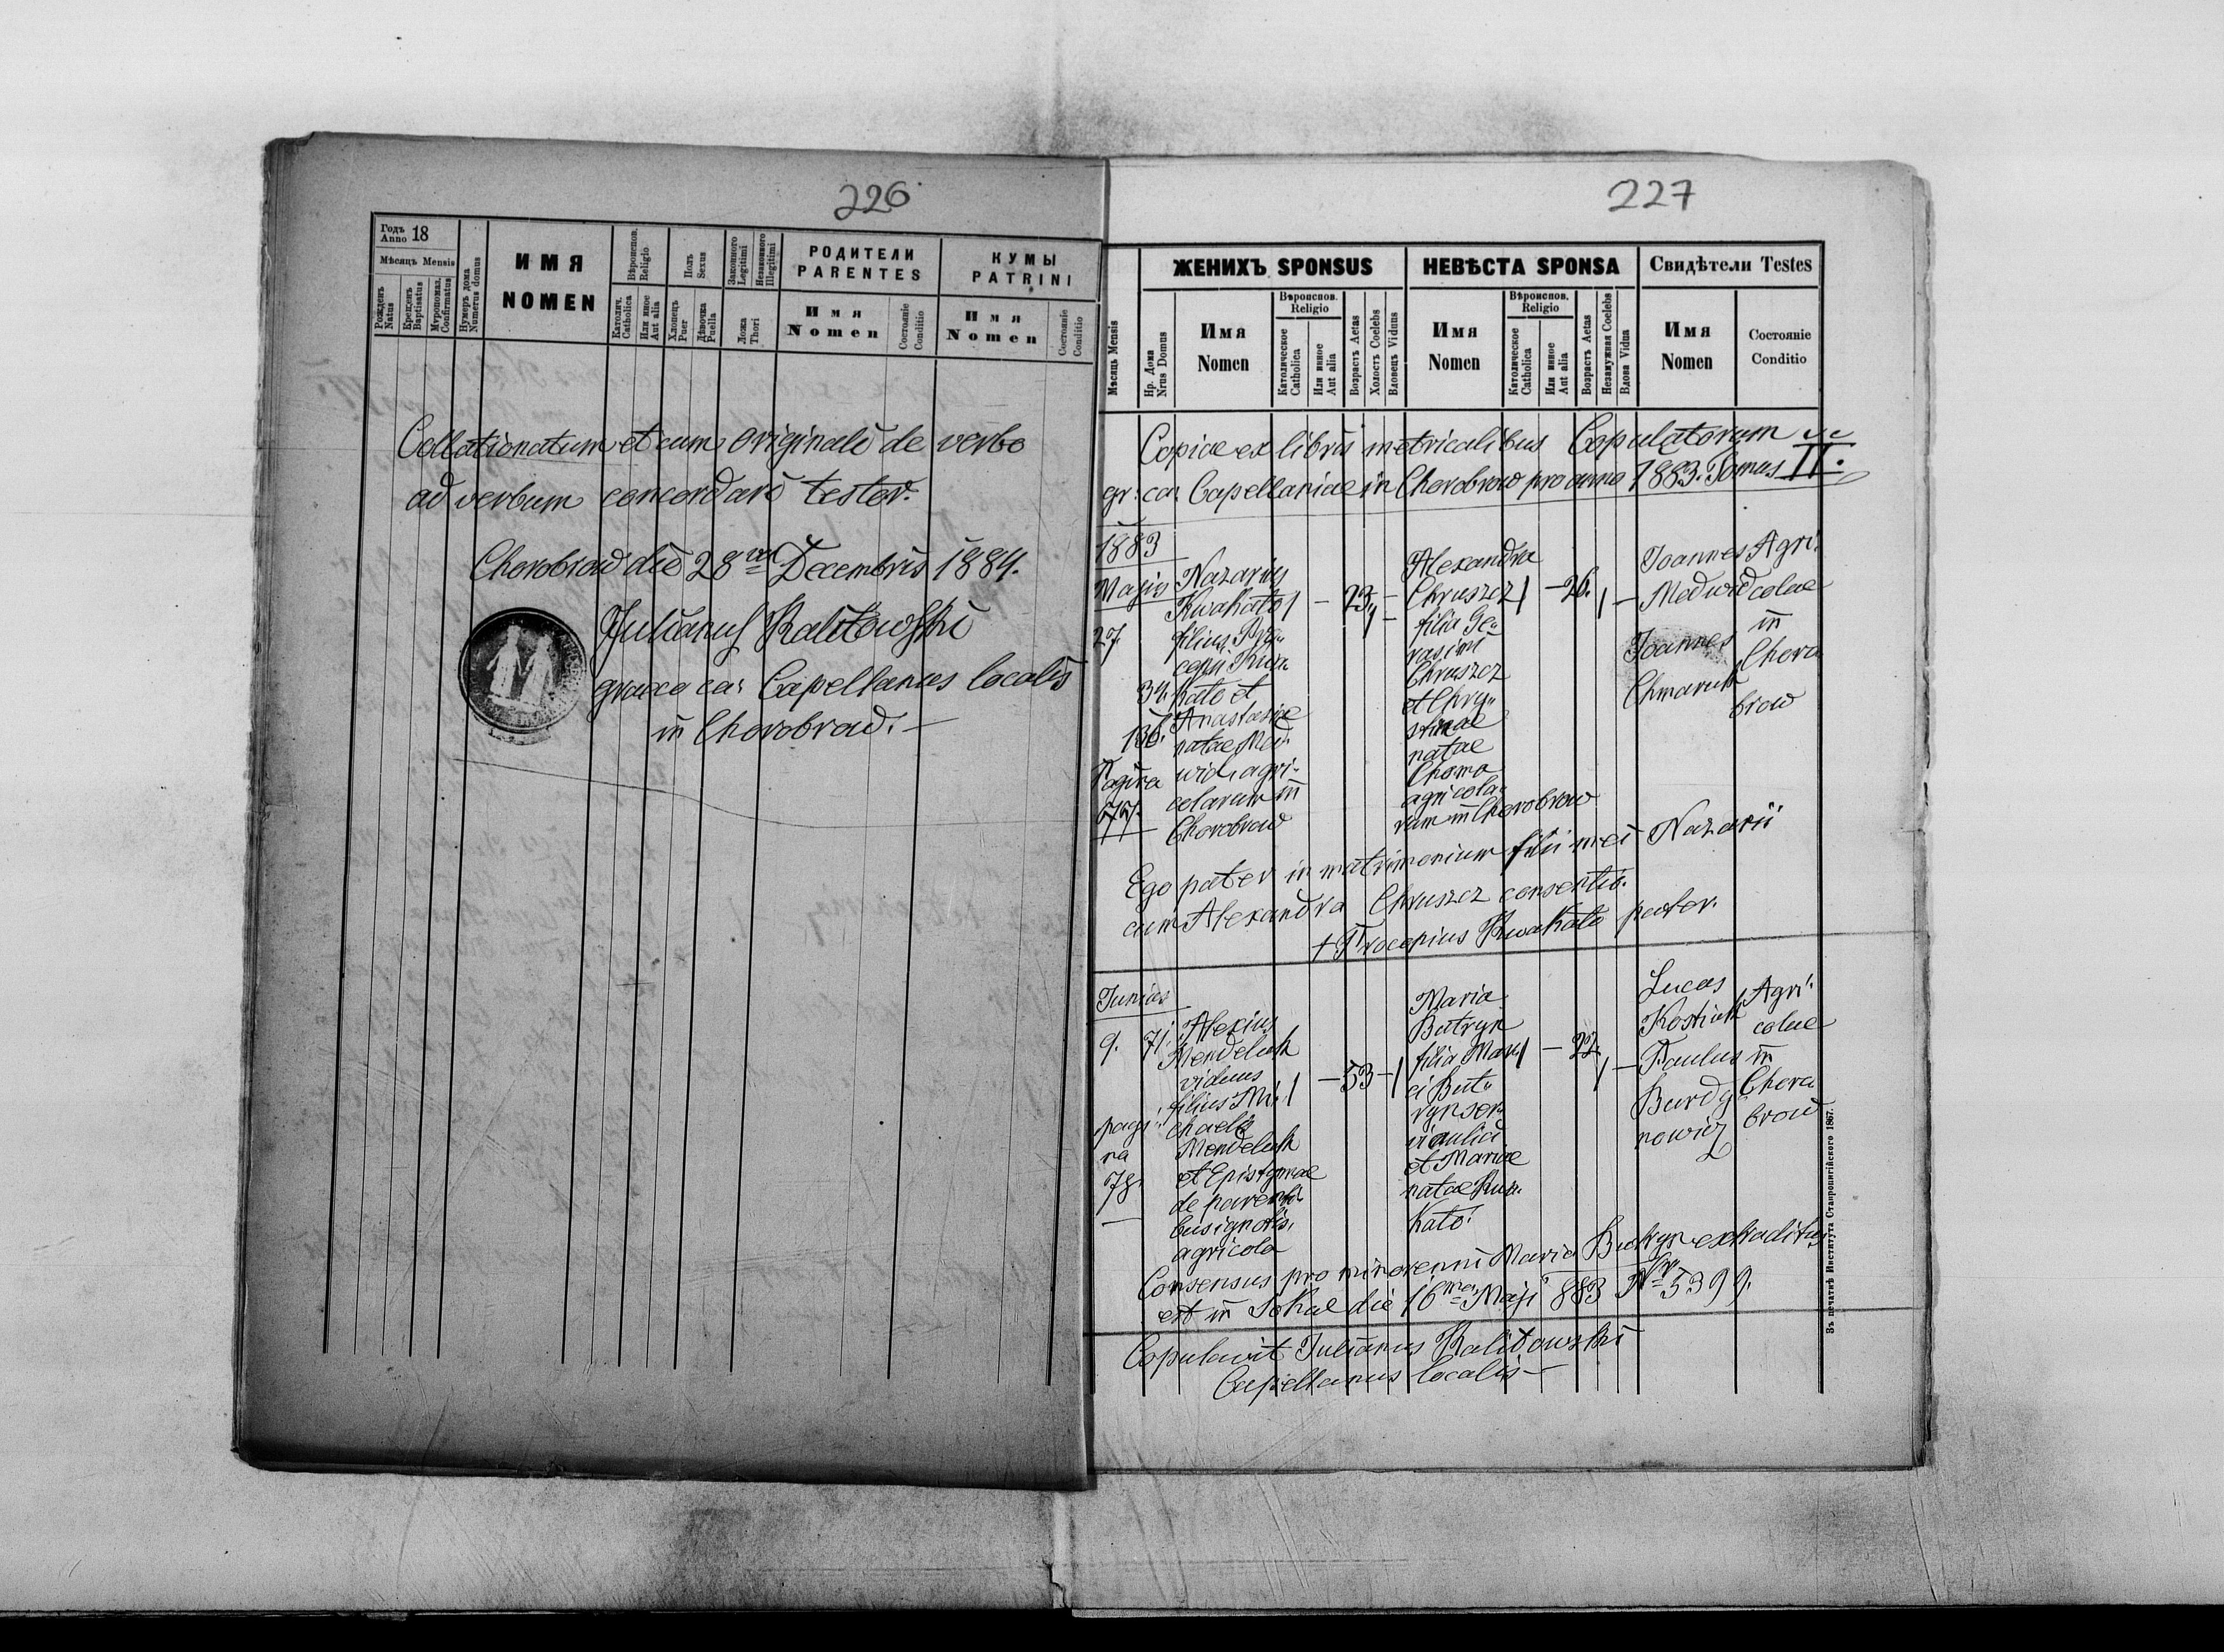 226
Годъ Anno 18
Мѣсяцъ Mensis
Рожденъ Natus
Крещенъ Baptisatus
Мѵропомаз. Confirmatus
Нумеръ дома Numerus domus
ИМЯ
NOMEN
Вѣроиспов. Religio
Католич. Catholica
Или иное Aut alia
Полъ Sexus
Хлопецъ Puer
Дѣвочка Puella
Законного Legitimi
Незаконного Illegitimi
Ложа Thori
РОДИТЕЛИ
PARENTES
Имя
Nomen
Состояніе Conditio
КУМЫ
PATRINI
Имя
Nomen
Состояніе Conditio
Collationatum et cum originali de verbo
ad verbum concordare testor.
Chorobrow die 28 Decembris 1884.
Julianus Kalitowski
graeco ca: Capellanus localis
in Chorobrow.
227
Мѣсяць Mensis
Нр. Дома Nrus Domus
ЖЕНИХЪ SPONSUS
Имя
Nomen
Вѣроиспов. Religio
Католическое Catholica
Или инное Aut alia
Возрастъ Aetas
Холостъ Coelebs
Вдовецъ Viduus
НЕВѢСТА SPONSA
Имя
Nomen
Вѣроиспов. Religio
Католическое Catholica
Или инное Aut alia
Возрастъ Aetas
Незамужная Coelebs
Вдова Vidua
Свидѣтели Testes
Имя
Nomen
Состояніе
Conditio
Copiae ex libris metricalibus Copulatorum
gr: ca: Capellaniae in Chorobrow pro anno 1883. Tomus II.
1883
Majus
27
34.
136.
Pagina
77.
Nazarius
Kwakato
filius Pro„
copii Kwa„
kato et
Anastasiae
natae Med„
wid, agri„
colarum in
Chorobrow
23
Alexandra
Chruszcz
filia Ge„
rasimi
Chruszcz
et Chry„
stinae
natae
Choma
agricola„
rum in Chorobrow
26.
Joannes
Medwid
Joannes
Chmaruk
Agri„
colae
in
Choro
brow
Ego pater in matrimonium filii mei Nazarii
cum Alexandra Chruszcz consentio.
+ Procopius Kwakato pater.
Junius
9.
71.
pagi„
na
78.
Alexius
Mendeluk
viduus
filius Mi„
chaelis
Mendeluk
et Epistymae
de parenti„
bus ignotis,
agricola
53
Maria
Butryn
filia Mar„
ci But„
ryn ser„
vi aulici
et Mariae
natae Kwa„
kato.
22.
Lucas
Kostiuk
Paulus
Burdy
nowicz
Agri„
colae
in
Choro
brow
Consensus pro minorenni Maria Butryn extraditus
est in Sokal die 16 Maji 883 Nr 5399.
Copulavit Julianus Kalitowski
Capellanus localis
Въ печатнѣ Института Ставропигійского 1867.